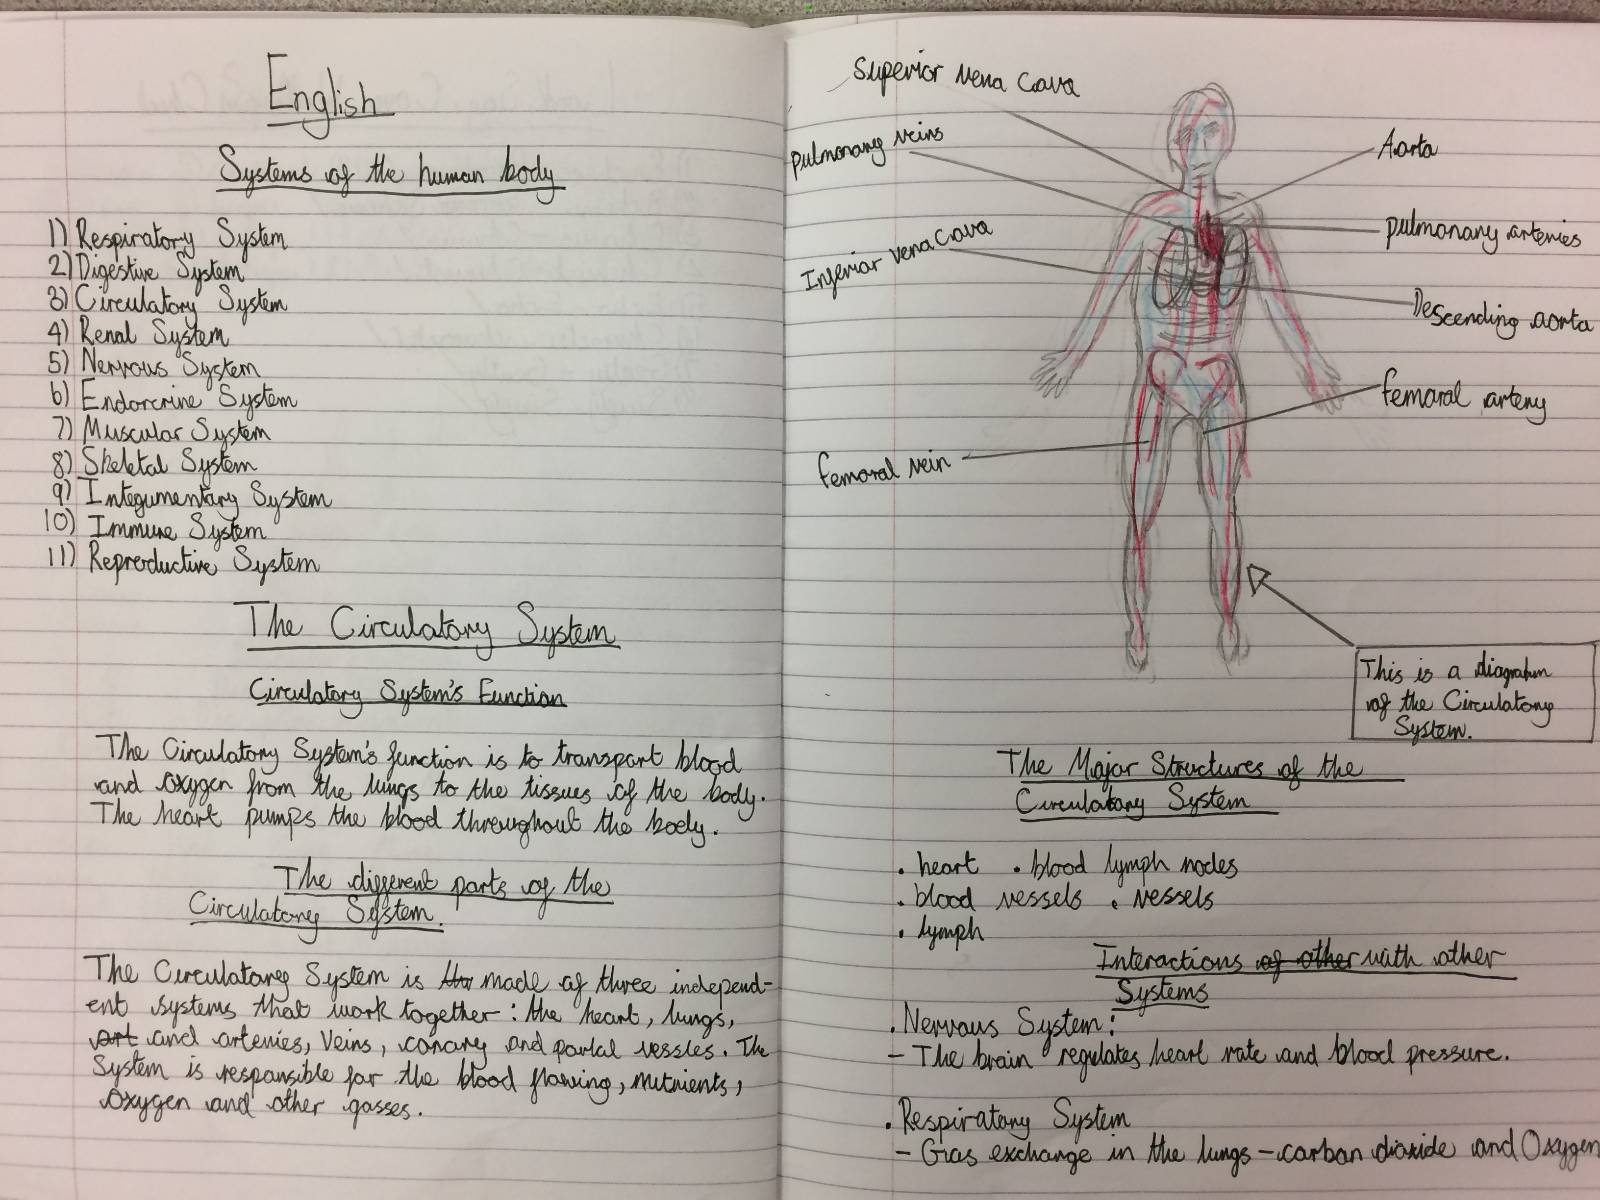 English
Systems of the human body
1) Respiratory System
2) Digestive System
3) Circulatory System
4) Renal System
5) Nervous System
6) Endorcrine System
7) Muscular System
8) Skeletal System
9) Integumentary System
10) Immune System
11) Reproductive System
The Circulatory System
Circulatory System's Function
The Circulatory System's function is to transport blood
and oxygen from the lungs to the tissues of the body.
The heart pumps the blood throughout the body.
The different parts of the
Circulatory System.
The Circulatory System is made of three independ-
ent systems that work together: the heart, lungs,
art and arteries, veins, conary and portal vessles. The
System is responsible for the blood flowing, nutrients,
oxygen and other gasses.
Superior vena cava
pulmonary veins
Inferior vena cava
femoral vein
Aorta
pulmonary arteries
Descending aorta
femoral artery
This is a diagram
of the Circulatory
System.
The Major Structures of the
Circulatory System
. heart . blood lymph nodes
. blood vessels . vessels
. lymph
Interactions of other with other
Systems
. Nervous System:
- The brain regulates heart rate and blood pressure.
. Respiratory System
- Gas exchange in the lungs - carbon dioxide and Oxygen